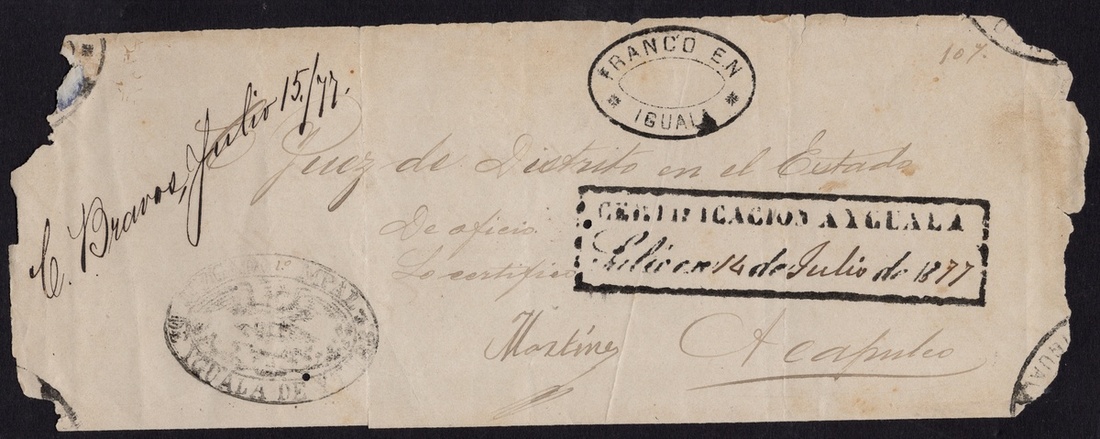 C. Bravos, Julio 15/77.
FRANCO EN
IGUALA
107.
Juez de Distrito en el Estado
De oficio
Lo certifico
CERTIFICACION AYGUALA
Salió en 14 de Julio de 1877
Martinez
Acapulco
1º MPAL
IGUALA DE
IGUALA